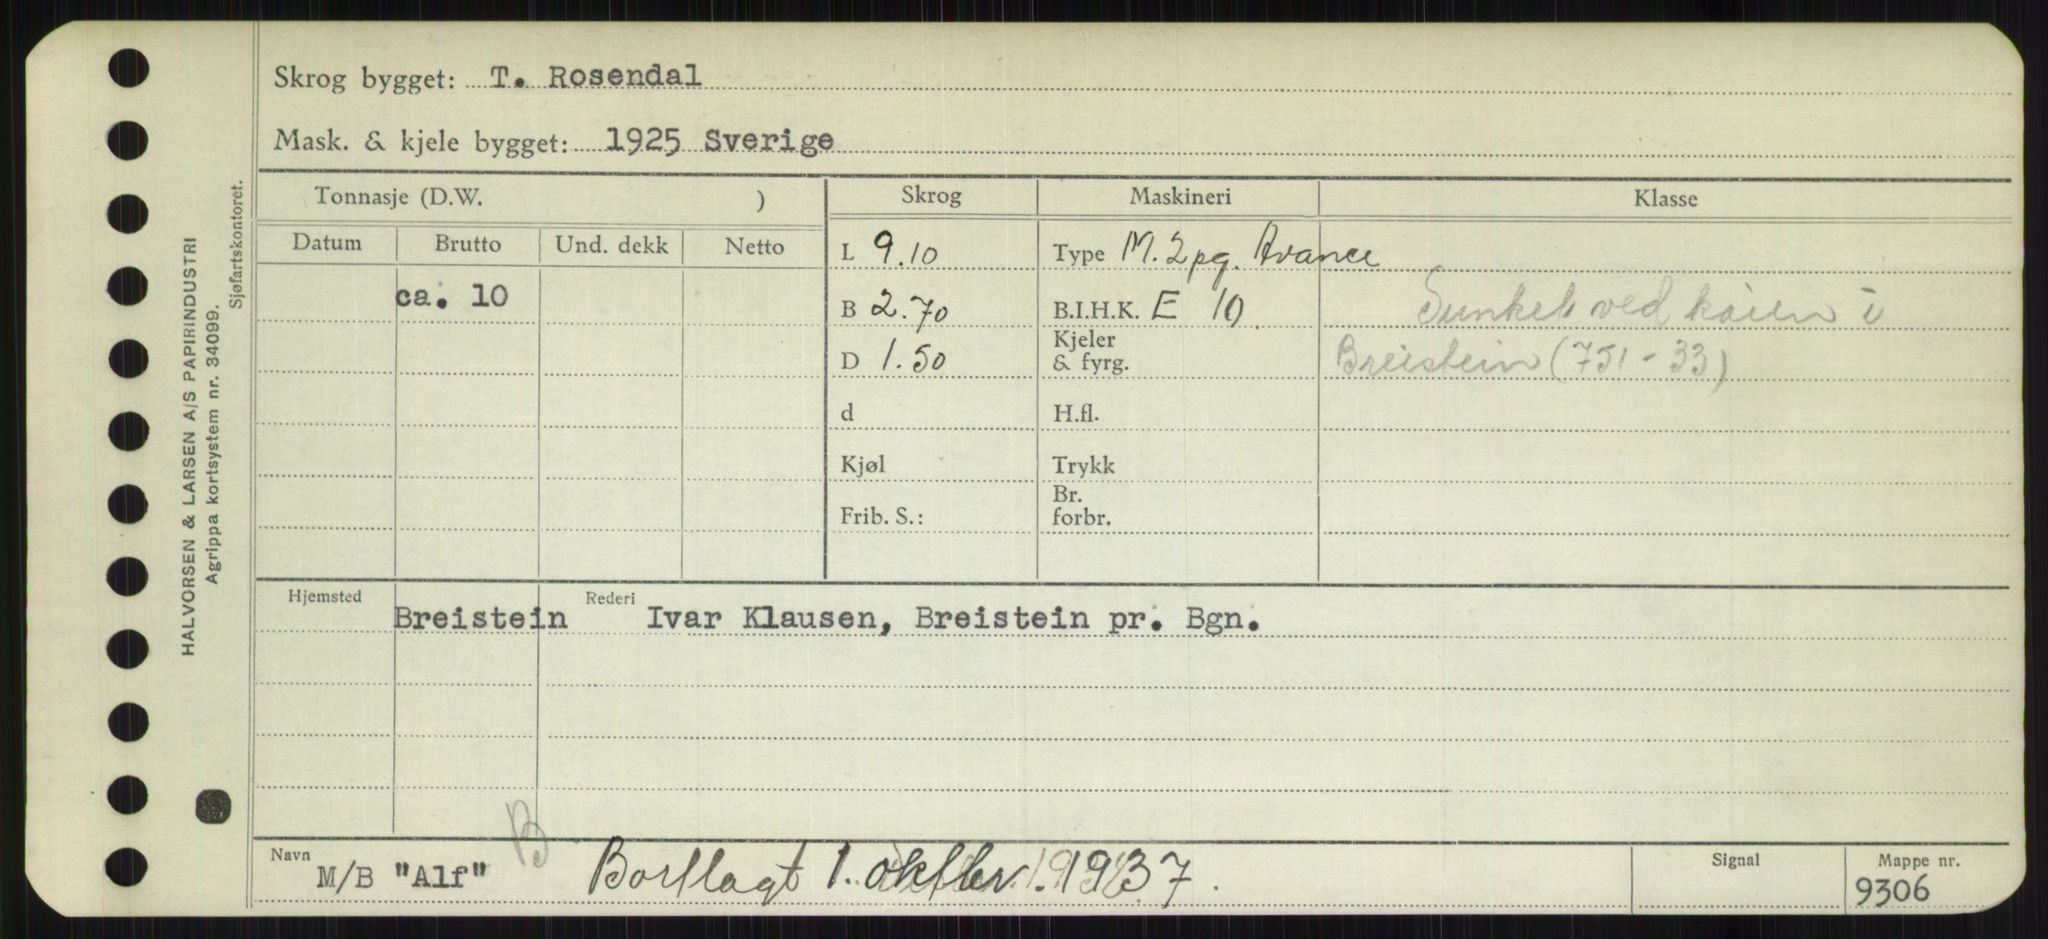 Skrog bygget: T. Rosendal
Mask. & kjele bygget: 1925 Sverige
Tonnasje (D.W. )
Skrog
Maskineri
Klasse
Datum
Brutto
Und. dekk
Netto
L 9.10
Type M. 2 pg. Avance
ca. 10
B 2.70
B.I.H.K. E 10
Sunket ved kaien i
D 1.50
Kjeler
& fyrg.
Breistein (751-33)
d
H.fl.
Kjøl
Trykk
Frib. S.:
Br.
forbr.
Hjemsted
Breistein
Rederi
Ivar Klausen, Breistein pr. Bgn.
B
Navn
M/B "Alf"
Bortlagt 1. oktbr. 1937.
Signal
Mappe nr.
9306
HALVORSEN & LARSEN A/S PAPIRINDUSTRI
Agrippa kortsystem nr. 34099.
Sjøfartskontoret.